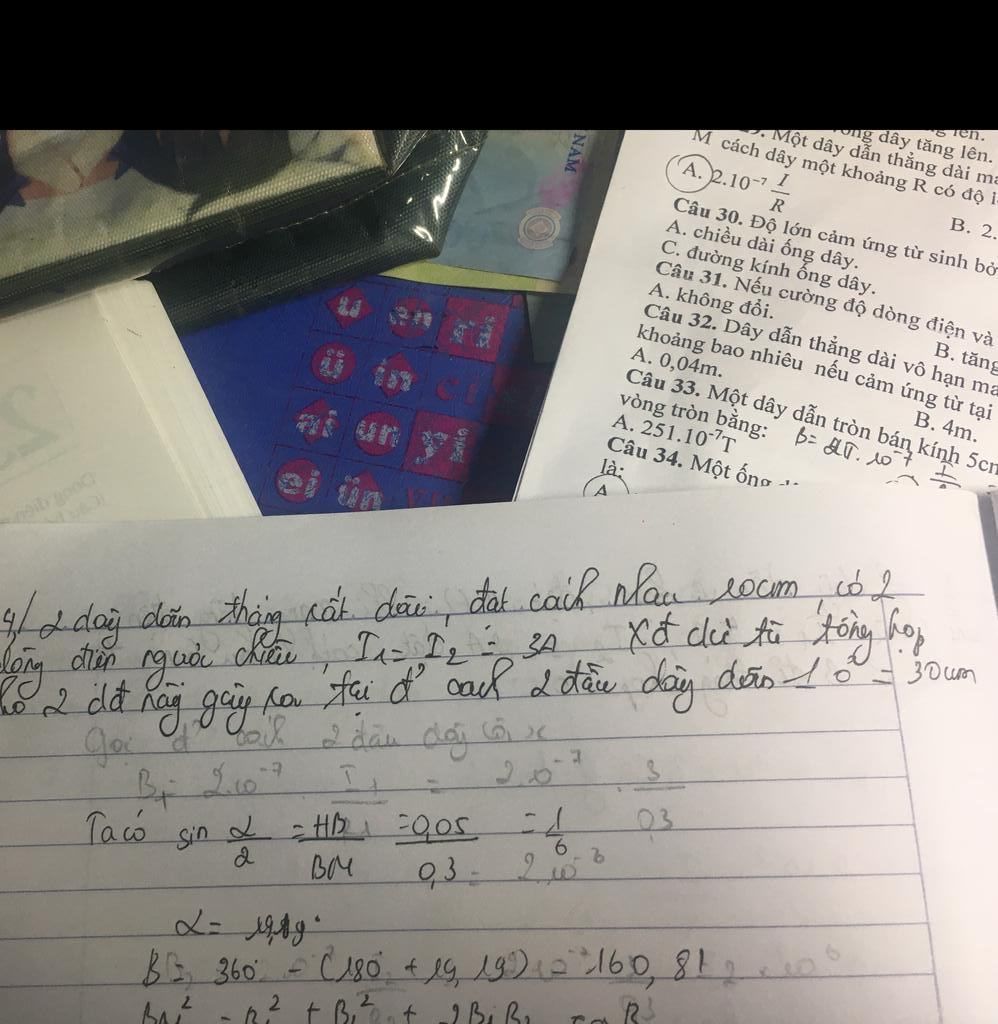 NAM
ông dây tăng lên.
Một dây dẫn thẳng dài ma
M cách dây một khoảng R có độ l
A. 2.10⁻⁷ I/R
B. 2.
Câu 30. Độ lớn cảm ứng từ sinh bở
A. chiều dài ống dây.
C. đường kính ống dây.
Câu 31. Nếu cường độ dòng điện và
A. không đổi.
B. tăng
Câu 32. Dây dẫn thẳng dài vô hạn ma
khoảng bao nhiêu nếu cảm ứng từ tại
A. 0,04m.
B. 4m.
Câu 33. Một dây dẫn tròn bán kính 5cm
vòng tròn bằng: B= 2π.10⁻⁷
A. 251.10⁻⁷T
Câu 34. Một ống
là:
A
u en ri
ü in ci
ai un yi
ei ün
4/ 2 dây dẫn thẳng rất dài, đặt cách nhau 10cm, có 2
dòng điện ngược chiều, I₁= I₂ = 3A Xđ cư từ tổng hợp
do 2 dđ này gây ra tại đ' cách 2 đầu dây dẫn 1 = 30cm
Gọi đ' cách 2 đầu dây là x
B₁= 2.10⁻⁷ I₁ = 2.10⁻⁷ 3/0,3
Ta có sin α/2 = HB/BM = 0,05/0,3 = 1/6
α= 19,19°
B = 360 - (180 + 19,19) = 160,81